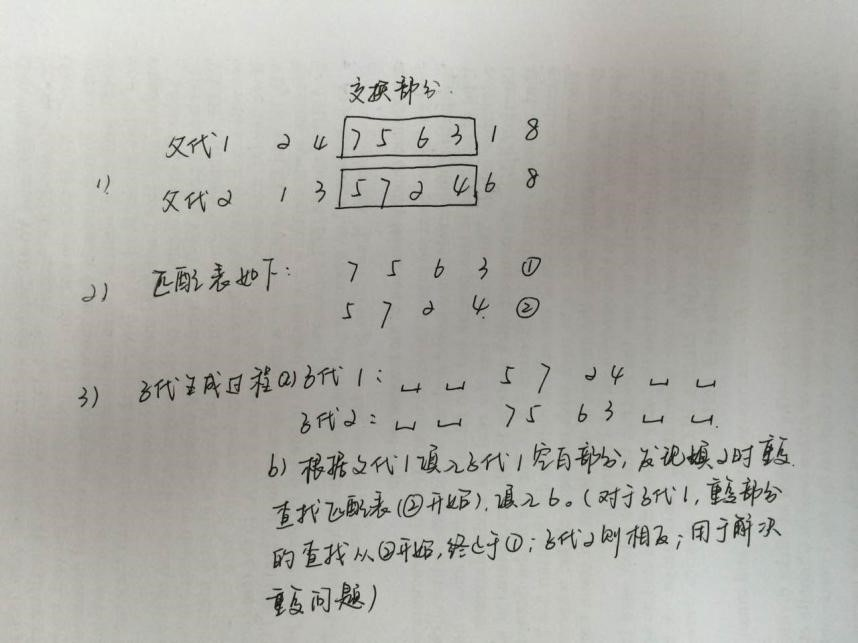 交换部分.
父代1 2 4 7 5 6 3 1 8
1)
父代2 1 3 5 7 2 4 6 8
2) 匹配表如下: 7 5 6 3 ①
5 7 2 4 ②
3) 子代生成过程 a) 子代1: ␣ ␣ 5 7 2 4 ␣ ␣
子代2: ␣ ␣ 7 5 6 3 ␣ ␣
b) 根据父代1填入子代1空白部分, 发现填2时重复.
查找匹配表(②开始), 填入6。(对于子代1, 重复部分
的查找从②开始, 终止于①; 子代2则相反; 用于解决
重复问题)